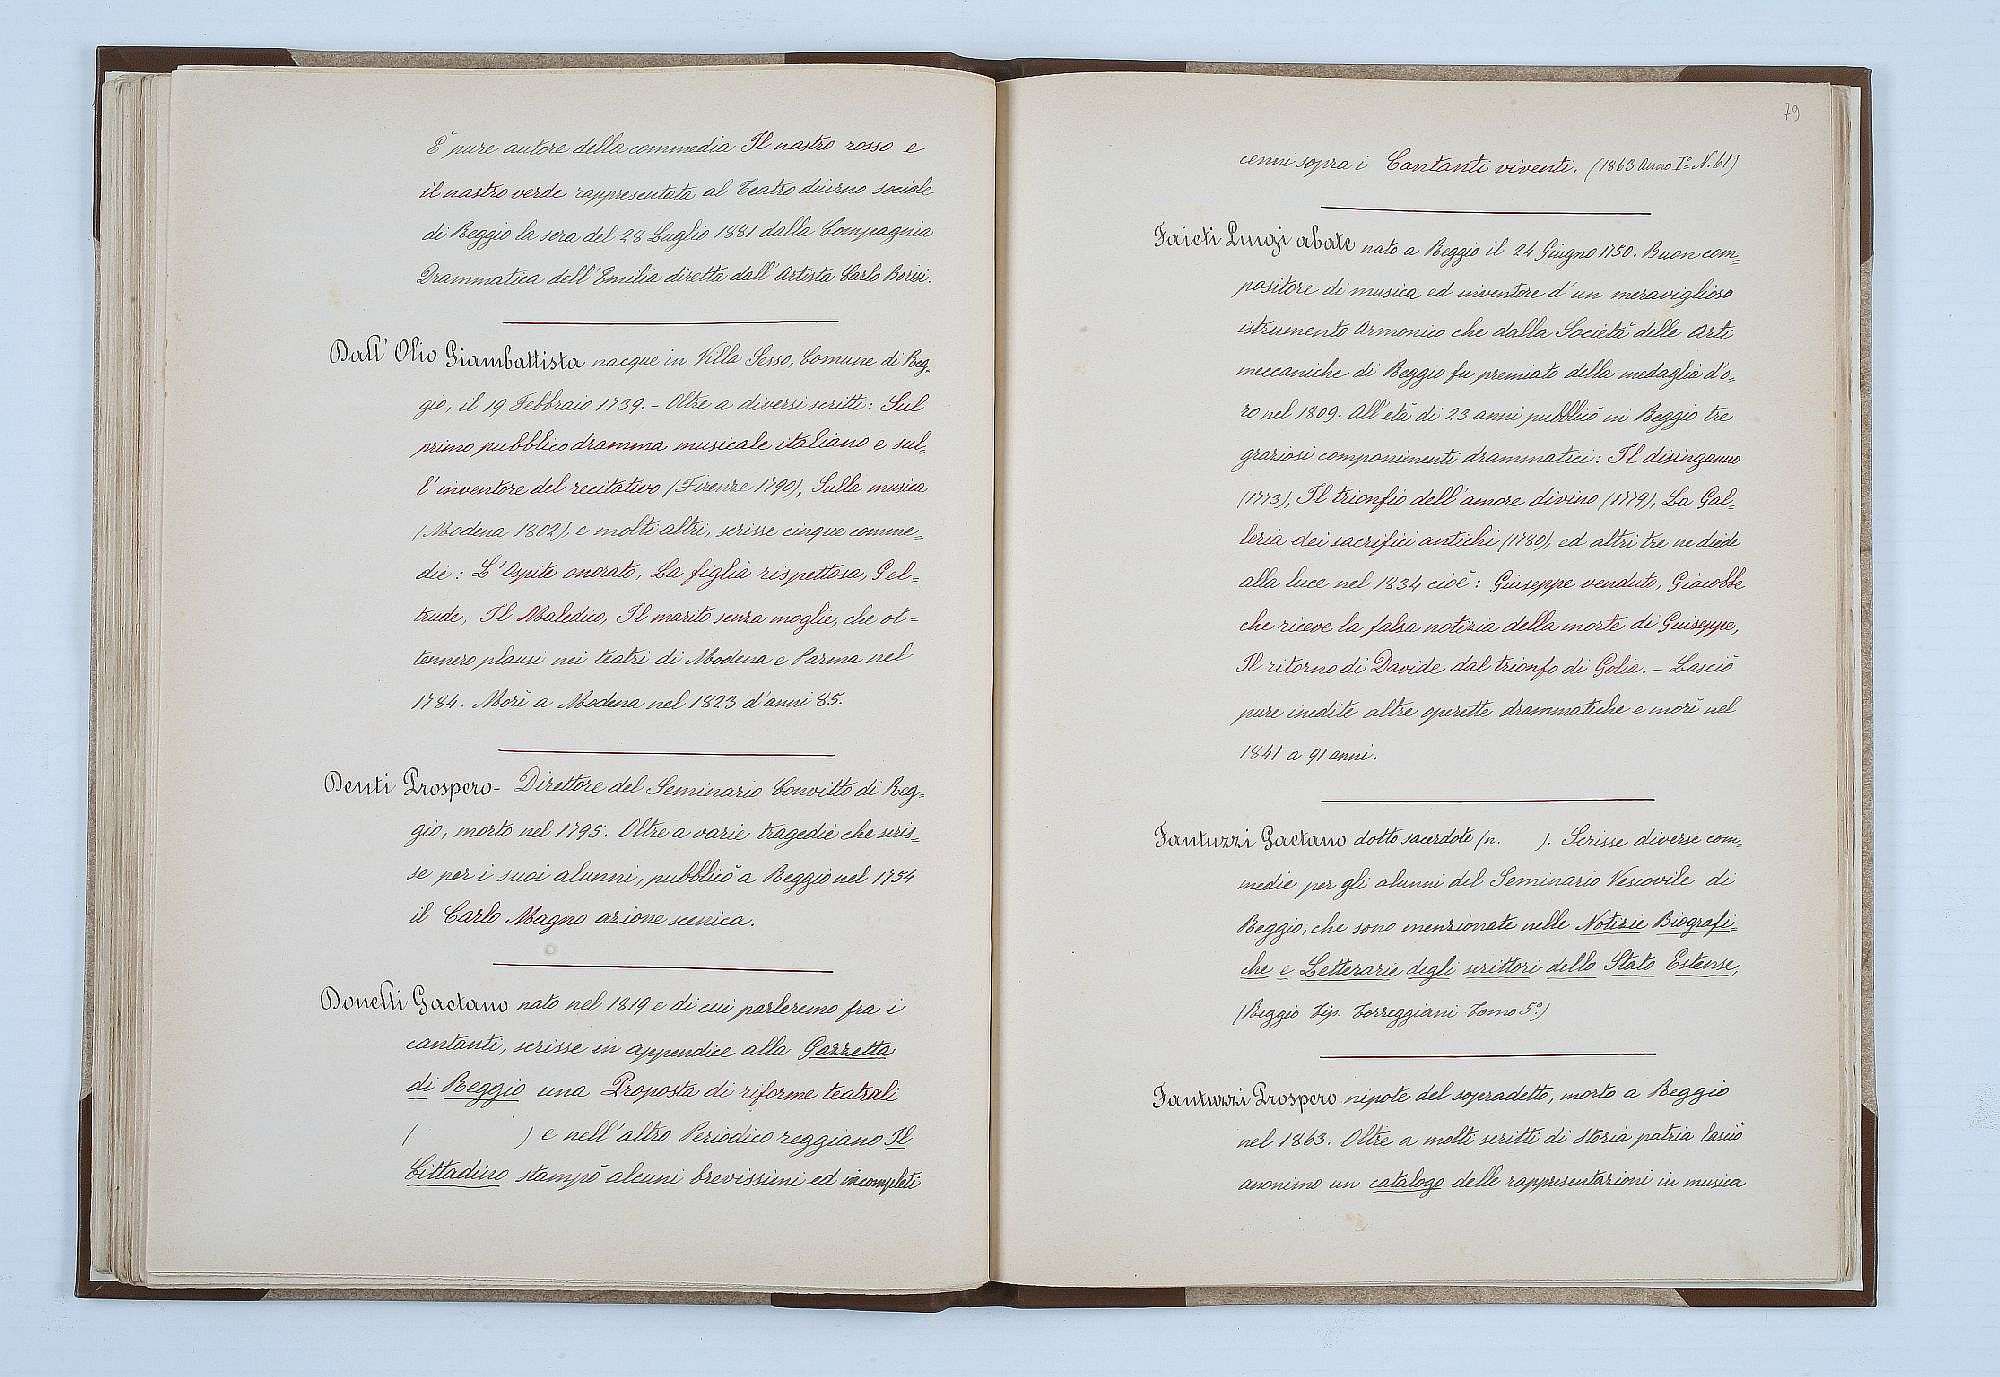 È pure autore della commedia Il nastro rosso e
il nastro verde rappresentata al Teatro diurno sociale
di Reggio la sera del 28 Luglio 1881 dalla Compagnia
Drammatica dell'Emilia diretta dall'Artista Carlo Borisi.
Dall'Olio Giambattista nacque in Villa Sesso, Comune di Reg-
gio, il 19 Febbraio 1739. - Oltre a diversi scritti: Sul
primo pubblico dramma musicale italiano e sul-
l'inventore del recitativo (Firenze 1790), Sulla musica
(Modena 1802), e molti altri, scrisse cinque comme-
die: L'Ospite onorato, La figlia rispettosa, Gel-
trude, Il Maledico, Il marito senza moglie, che ot-
tennero plausi nei teatri di Modena e Parma nel
1784. Morì a Modena nel 1823 d'anni 85.
Denti Prospero - Direttore del Seminario Convitto di Reg-
gio, morto nel 1795. Oltre a varie tragedie che scris-
se per i suoi alunni, pubblicò a Reggio nel 1754
il Carlo Magno azione scenica.
Donelli Gaetano nato nel 1819 e di cui parleremo fra i
cantanti, scrisse in appendice alla Gazzetta
di Reggio una Proposta di riforme teatrali
( ) e nell'altro Periodico reggiano Il
Cittadino stampò alcuni brevissimi ed incompleti
79
cenni sopra i Cantanti viventi. (1863 Anno I° N. 61)
Faieti Luigi abate nato a Reggio il 24 Giugno 1750. Buon com-
positore di musica ed inventore d'un meraviglioso
istrumento Armonico che dalla Società delle Arti
meccaniche di Reggio fu premiato della medaglia d'o-
ro nel 1809. All'età di 23 anni pubblicò in Reggio tre
graziosi componimenti drammatici: Il disinganno
(1773), Il trionfio dell'amore divino (1779), La Gal-
leria dei sacrifici antichi (1780), ed altri tre ne diede
alla luce nel 1834 cioè: Giuseppe venduto, Giacobbe
che riceve la falsa notizia della morte di Giuseppe,
Il ritorno di Davide dal trionfo di Golia. - Lasciò
pure inedite altre operette drammatiche e morì nel
1841 a 91 anni.
Fantuzzi Gaetano dotto sacerdote (n. ). Scrisse diverse com-
medie per gli alunni del Seminario Vescovile di
Reggio, che sono menzionate nelle Notizie Biografi-
che e Letterarie degli scrittori dello Stato Estense,
(Reggio Tip. Torreggiani Tomo 5°)
Fantuzzi Prospero nipote del sopradetto, morto a Reggio
nel 1863. Oltre a molti scritti di storia patria lasciò
anonimo un catalogo delle rappresentazioni in musica